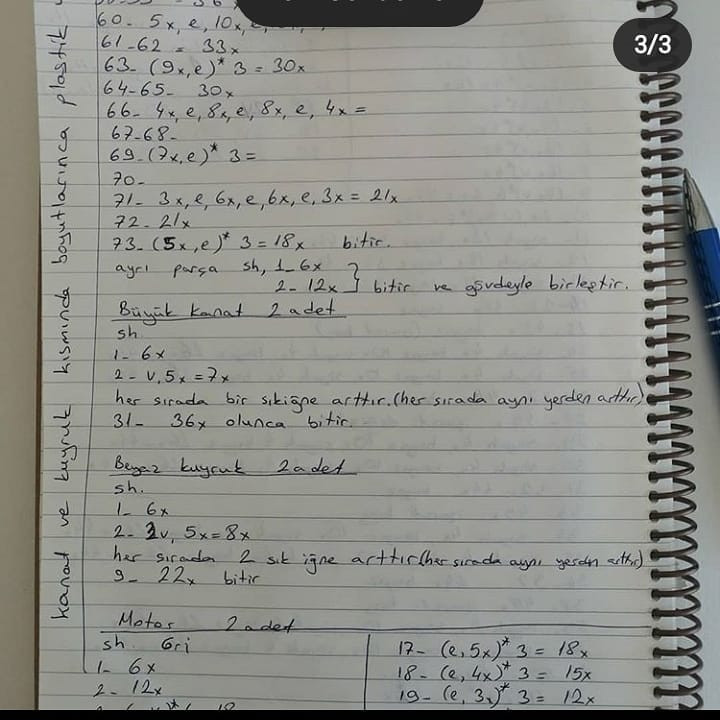 3/3
60- 5x, e, 10x, e,
61-62 = 33x
63- (9x,e)* 3 = 30x
64-65- 30x
66- 4x, e, 8x, e, 8x, e, 4x =
67-68-
69- (7x,e)* 3 =
70-
71- 3x, e, 6x, e, 6x, e, 3x = 21x
72- 21x
73- (5x,e)* 3 = 18x bitir.
ayrı parça sh, 1- 6x
2- 12x } bitir ve gövdeyle birleştir.
Büyük kanat 2 adet
sh.
1- 6x
2- v, 5x = 7x
her sırada bir sıkiğne arttır. (her sırada aynı yerden arttır)
31- 36x olunca bitir.
Beyaz kuyruk 2 adet
sh.
1- 6x
2- 2v, 5x = 8x
her sırada 2 sık iğne arttır (her sırada aynı yerden arttır)
9- 22x bitir
kanat ve kuyruk kısmında boyutlarınca plastik
Motor 2 adet
sh. Gri
1- 6x
2- 12x
17- (e, 5x)* 3 = 18x
18- (e, 4x)* 3 = 15x
19- (e, 3x)* 3 = 12x